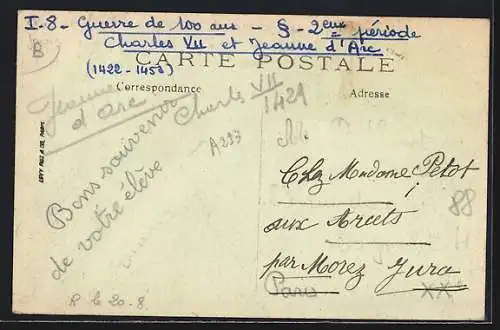 I-8- Guerre de 100 ans - § - 2eme période
Charles VII et Jeanne d'Arc
(1422 - 1453)
B
CARTE POSTALE
Correspondance
Adresse
Jeanne
d'Arc
Charles VII
1429
A 223
LEVY FILS & CIE, PARIS
Bons souvenirs
de votre élève
Chez Madame Petot
aux Arcets
par Morez Jura
Paris
88
R le 20.8.
XX